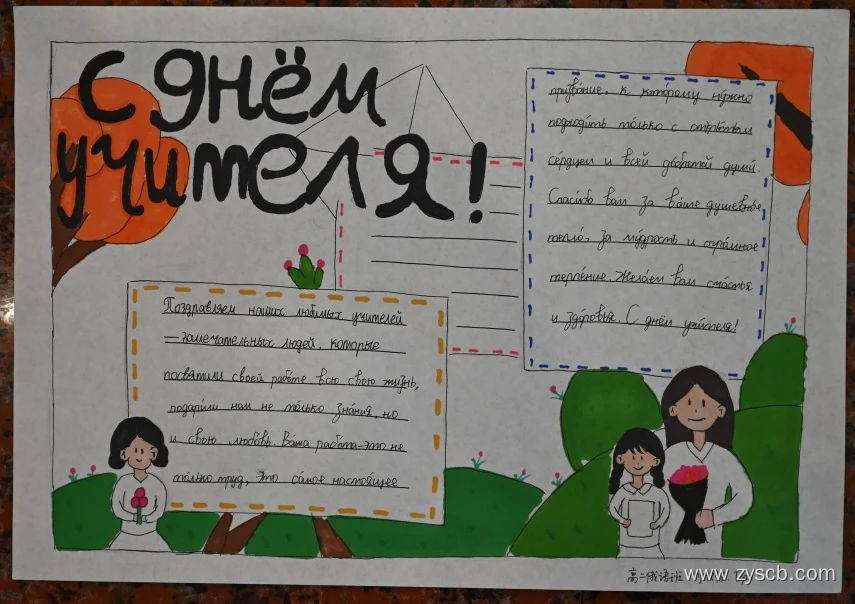 С днём
учителя!
Поздравляем наших любимых учителей
— замечательных людей, которые
посвятили своей работе всю свою жизнь,
подарили нам не то́лько зна́ния, но
и свою любо́вь. Ва́ша рабо́та-это не
то́лько труд, это са́мое настоя́щее
призва́ние, к кото́рому ну́жно
подходи́ть то́лько с откры́тым
се́рдцем и всей доброто́й души́.
Спаси́бо вам за ва́ше душе́вное
тепло́, за му́дрость и огро́мное
терпе́ние. Жела́ем вам сча́стья
и здоро́вья. С днём учи́теля!
高二俄语班
www.zyscb.com